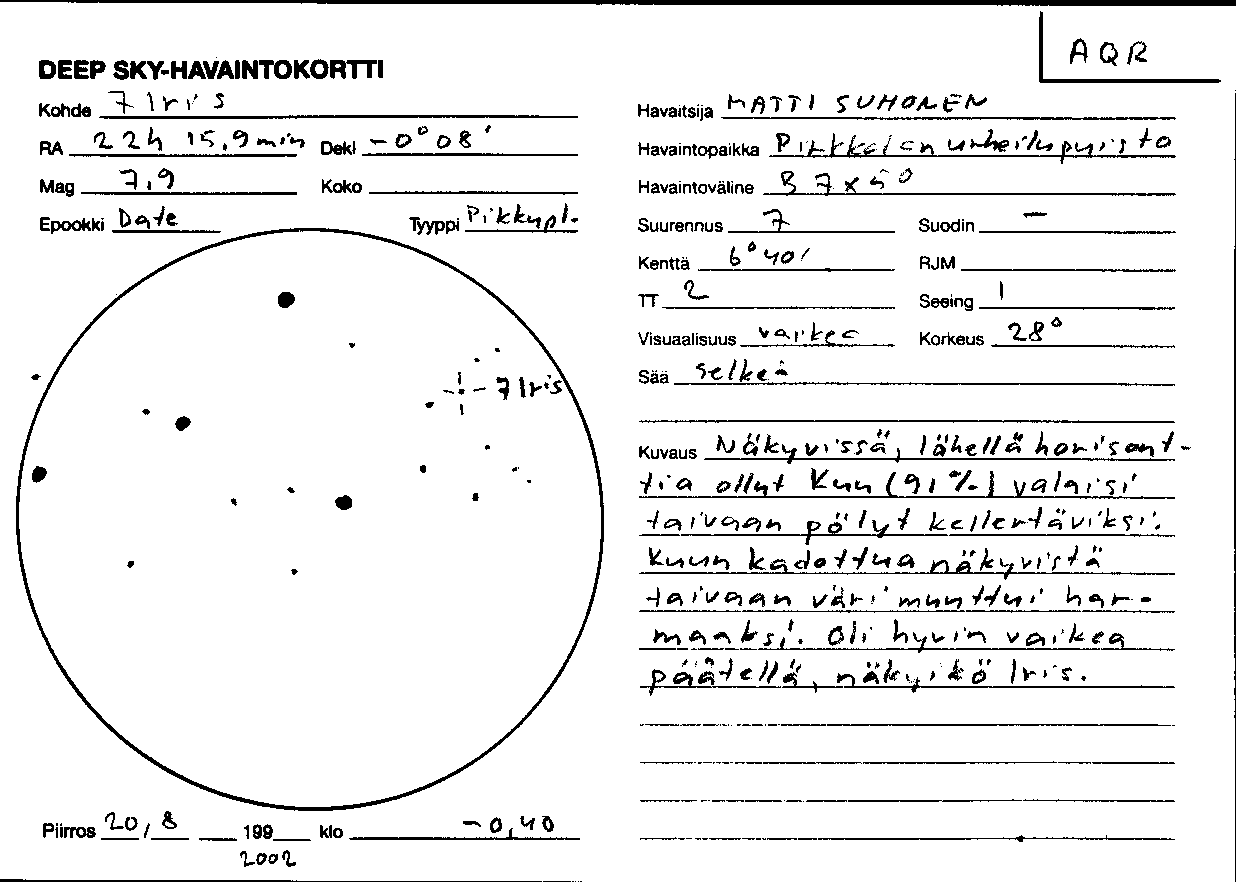 AQR
DEEP SKY-HAVAINTOKORTTI
Kohde 7 Iris
RA 22h 15,9 min Dekl -0° 08'
Mag 7,9 Koko
Epookki Date Tyyppi Pikkupl.
7 Iris
Piirros 20/8 199 klo -0,40
2002
Havaitsija MATTI SUHONEN
Havaintopaikka Pirkkalan urheilupuisto
Havaintoväline B 7x50
Suurennus 7 Suodin -
Kenttä 6° 40' RJM
TT 2 Seeing 1
Visuaalisuus vaikea Korkeus 28°
Sää selkeä
Kuvaus Näkyvissä, lähellä horisont-
tia ollut Kuu (91%) valaisi
taivaan pölyt kellertäviksi.
Kuun kadottua näkyvistä
taivaan väri muuttui har-
maaksi. Oli hyvin vaikea
päätellä, näkyikö Iris.